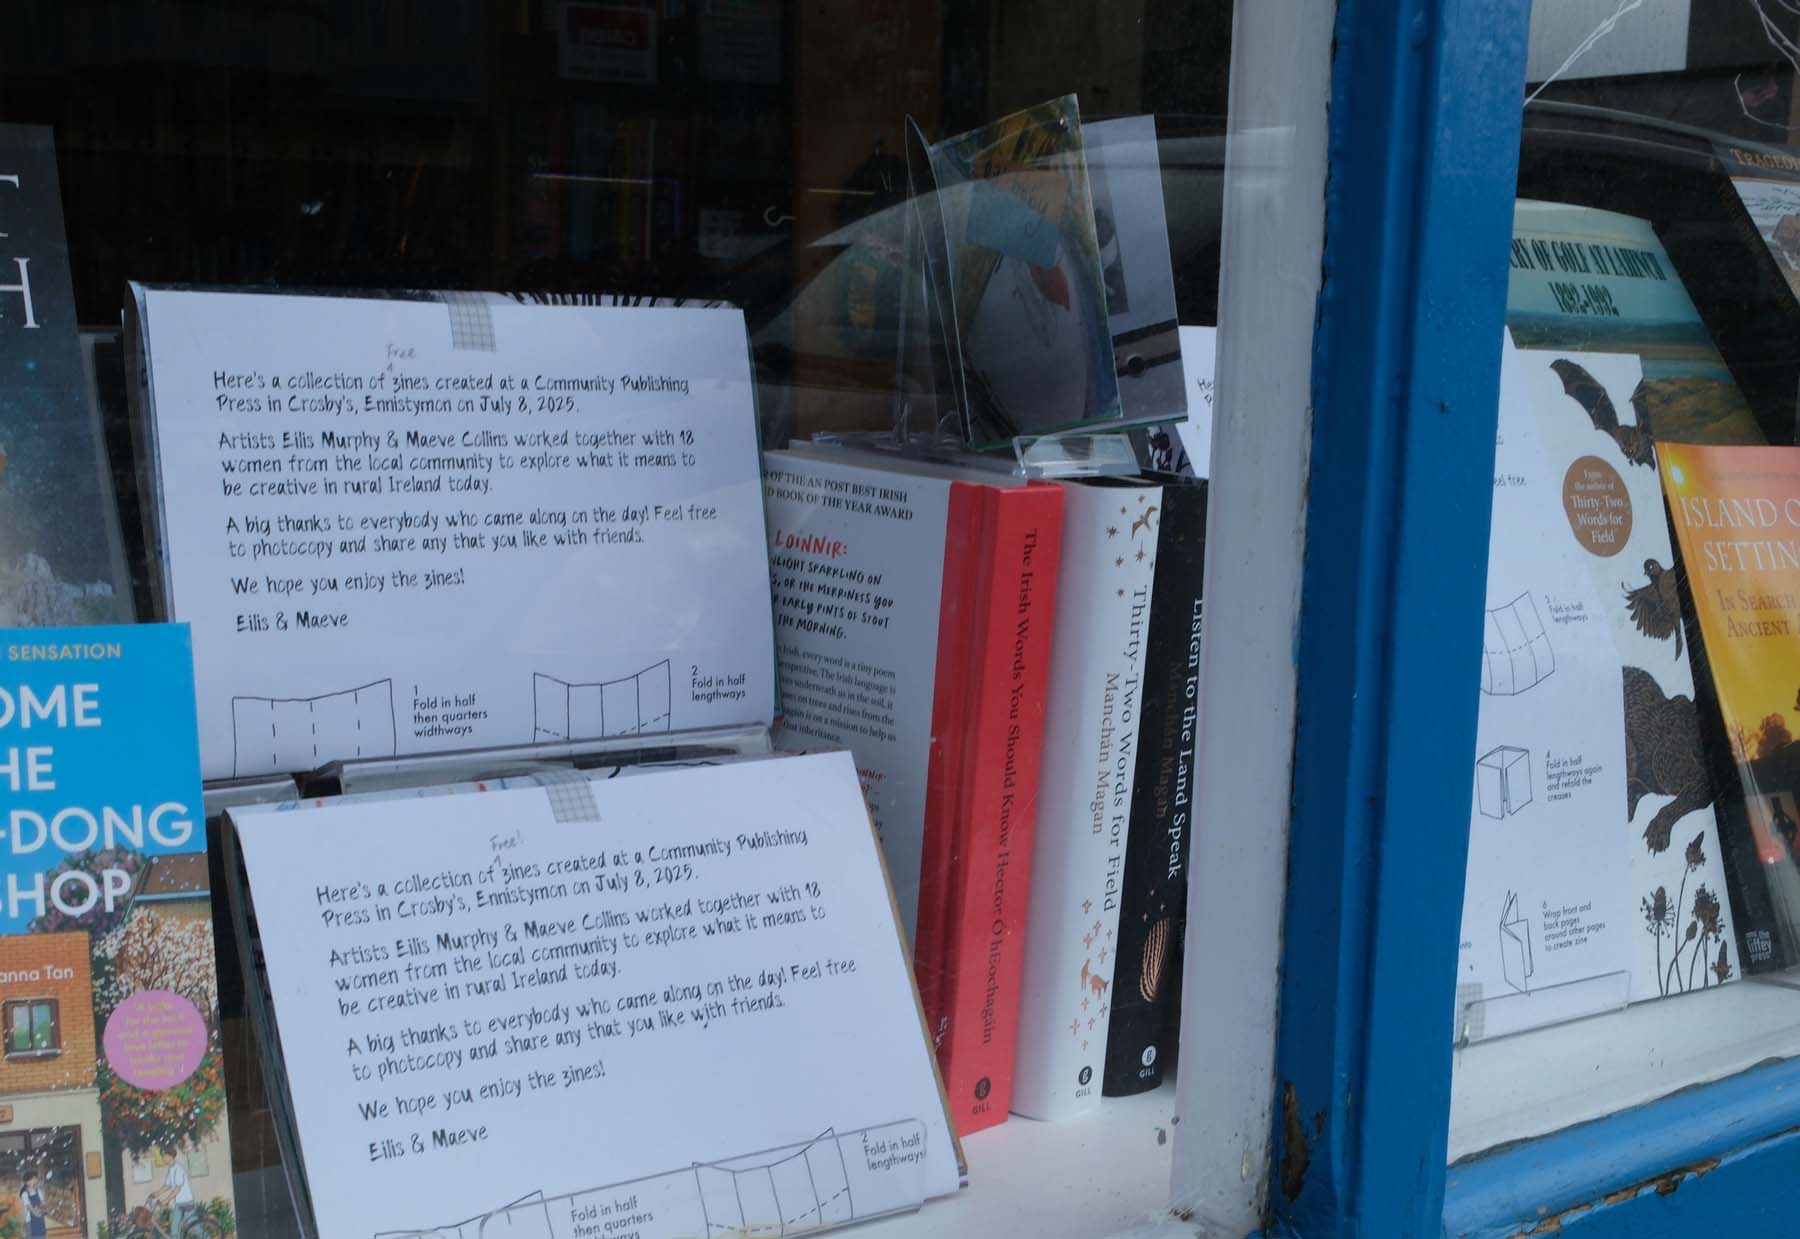 H
SENSATION
OME
HE
-DONG
SHOP
anna Tan
Free
Here's a collection of zines created at a Community Publishing
Press in Crosby's, Ennistymon on July 8, 2025.
Artists Eilis Murphy & Maeve Collins worked together with 18
women from the local community to explore what it means to
be creative in rural Ireland today.
A big thanks to everybody who came along on the day! Feel free
to photocopy and share any that you like with friends.
We hope you enjoy the zines!
Eilis & Maeve
1
Fold in half
then quarters
widthways
2
Fold in half
lengthways
Free!
Here's a collection of zines created at a Community Publishing
Press in Crosby's, Ennistymon on July 8, 2025.
Artists Eilis Murphy & Maeve Collins worked together with 18
women from the local community to explore what it means to
be creative in rural Ireland today.
A big thanks to everybody who came along on the day! Feel free
to photocopy and share any that you like with friends.
We hope you enjoy the zines!
Eilis & Maeve
1
Fold in half
then quarters
2
Fold in half
lengthways
OF THE AN POST BEST IRISH
BOOK OF THE YEAR AWARD
LOINNIR:
NLIGHT SPARKLING ON
, OR THE MERRINESS YOU
EARLY PINTS OF STOUT
THE MORNING.
Irish, every word is a tiny poem
perspective. The Irish language is
underneath us in the soil, it
on trees and rises from the
is on a mission to help us
that inheritance.
The Irish Words You Should Know Hector Ó hEochagáin
GILL
Thirty-Two Words for Field
Manchán Magan
GILL
Listen to the Land Speak
Manchán Magan
GILL
RY OF GOLF AT LAHINCH
1892-1992
eel free
2
Fold in half
lengthways
4
Fold in half
lengthways again
and refold the
creases
6
Wrap front and
back pages
around other pages
to create zine
From
the author of
Thirty-Two
Words for
Field
ISLAND O
SETTIN
IN SEARCH
ANCIENT
the
liffey
press